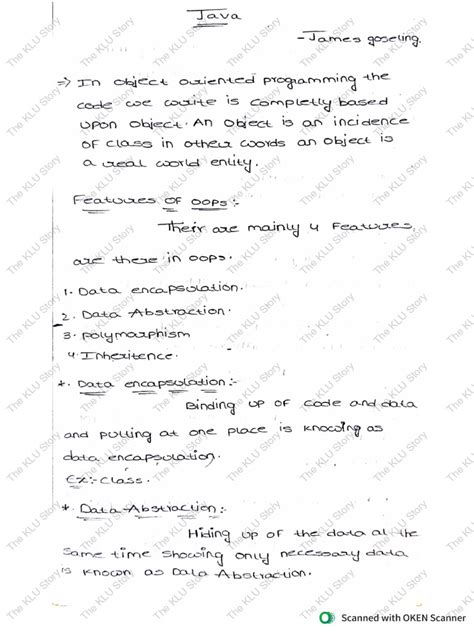 Java
- James goseling.
=> In object oriented programming the
code we write is completly based
upon object. An object is an incidence
of class in other words an object is
a real world entity.
Features of oops :-
Their are mainly 4 features
are there in oops.
1. Data encapsulation.
2. Data Abstraction.
3. polymorphism
4. Inheritence.
*. Data encapsulation:-
Binding up of code and data
and putting at one place is knowing as
data encapsulation.
Ex:- class.
*. Data Abstraction:-
Hiding up of the data at the
same time showing only necessary data
is known as Data Abstraction.
The KLU Story
Scanned with OKEN Scanner